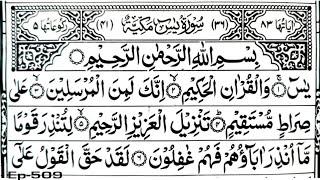 اٰیَاتُهَا ۸۳ (۳۶) سُوْرَةُ يٰسٓ مَكِّيَّةٌ (۴۱) رُكُوْعَاتُهَا ۵
بِسْمِ اللّٰهِ الرَّحْمٰنِ الرَّحِيْمِ ۝
يٰسٓ ۝۱ وَالْقُرْاٰنِ الْحَكِيْمِ ۝۲ اِنَّكَ لَمِنَ الْمُرْسَلِيْنَ ۝۳ عَلٰى
صِرَاطٍ مُّسْتَقِيْمٍ ۝۴ تَنْزِيْلَ الْعَزِيْزِ الرَّحِيْمِ ۝۵ لِتُنْذِرَ قَوْمًا
مَّاۤ اُنْذِرَ اٰبَآؤُهُمْ فَهُمْ غٰفِلُوْنَ ۝۶ لَقَدْ حَقَّ الْقَوْلُ عَلٰۤى
Ep-509